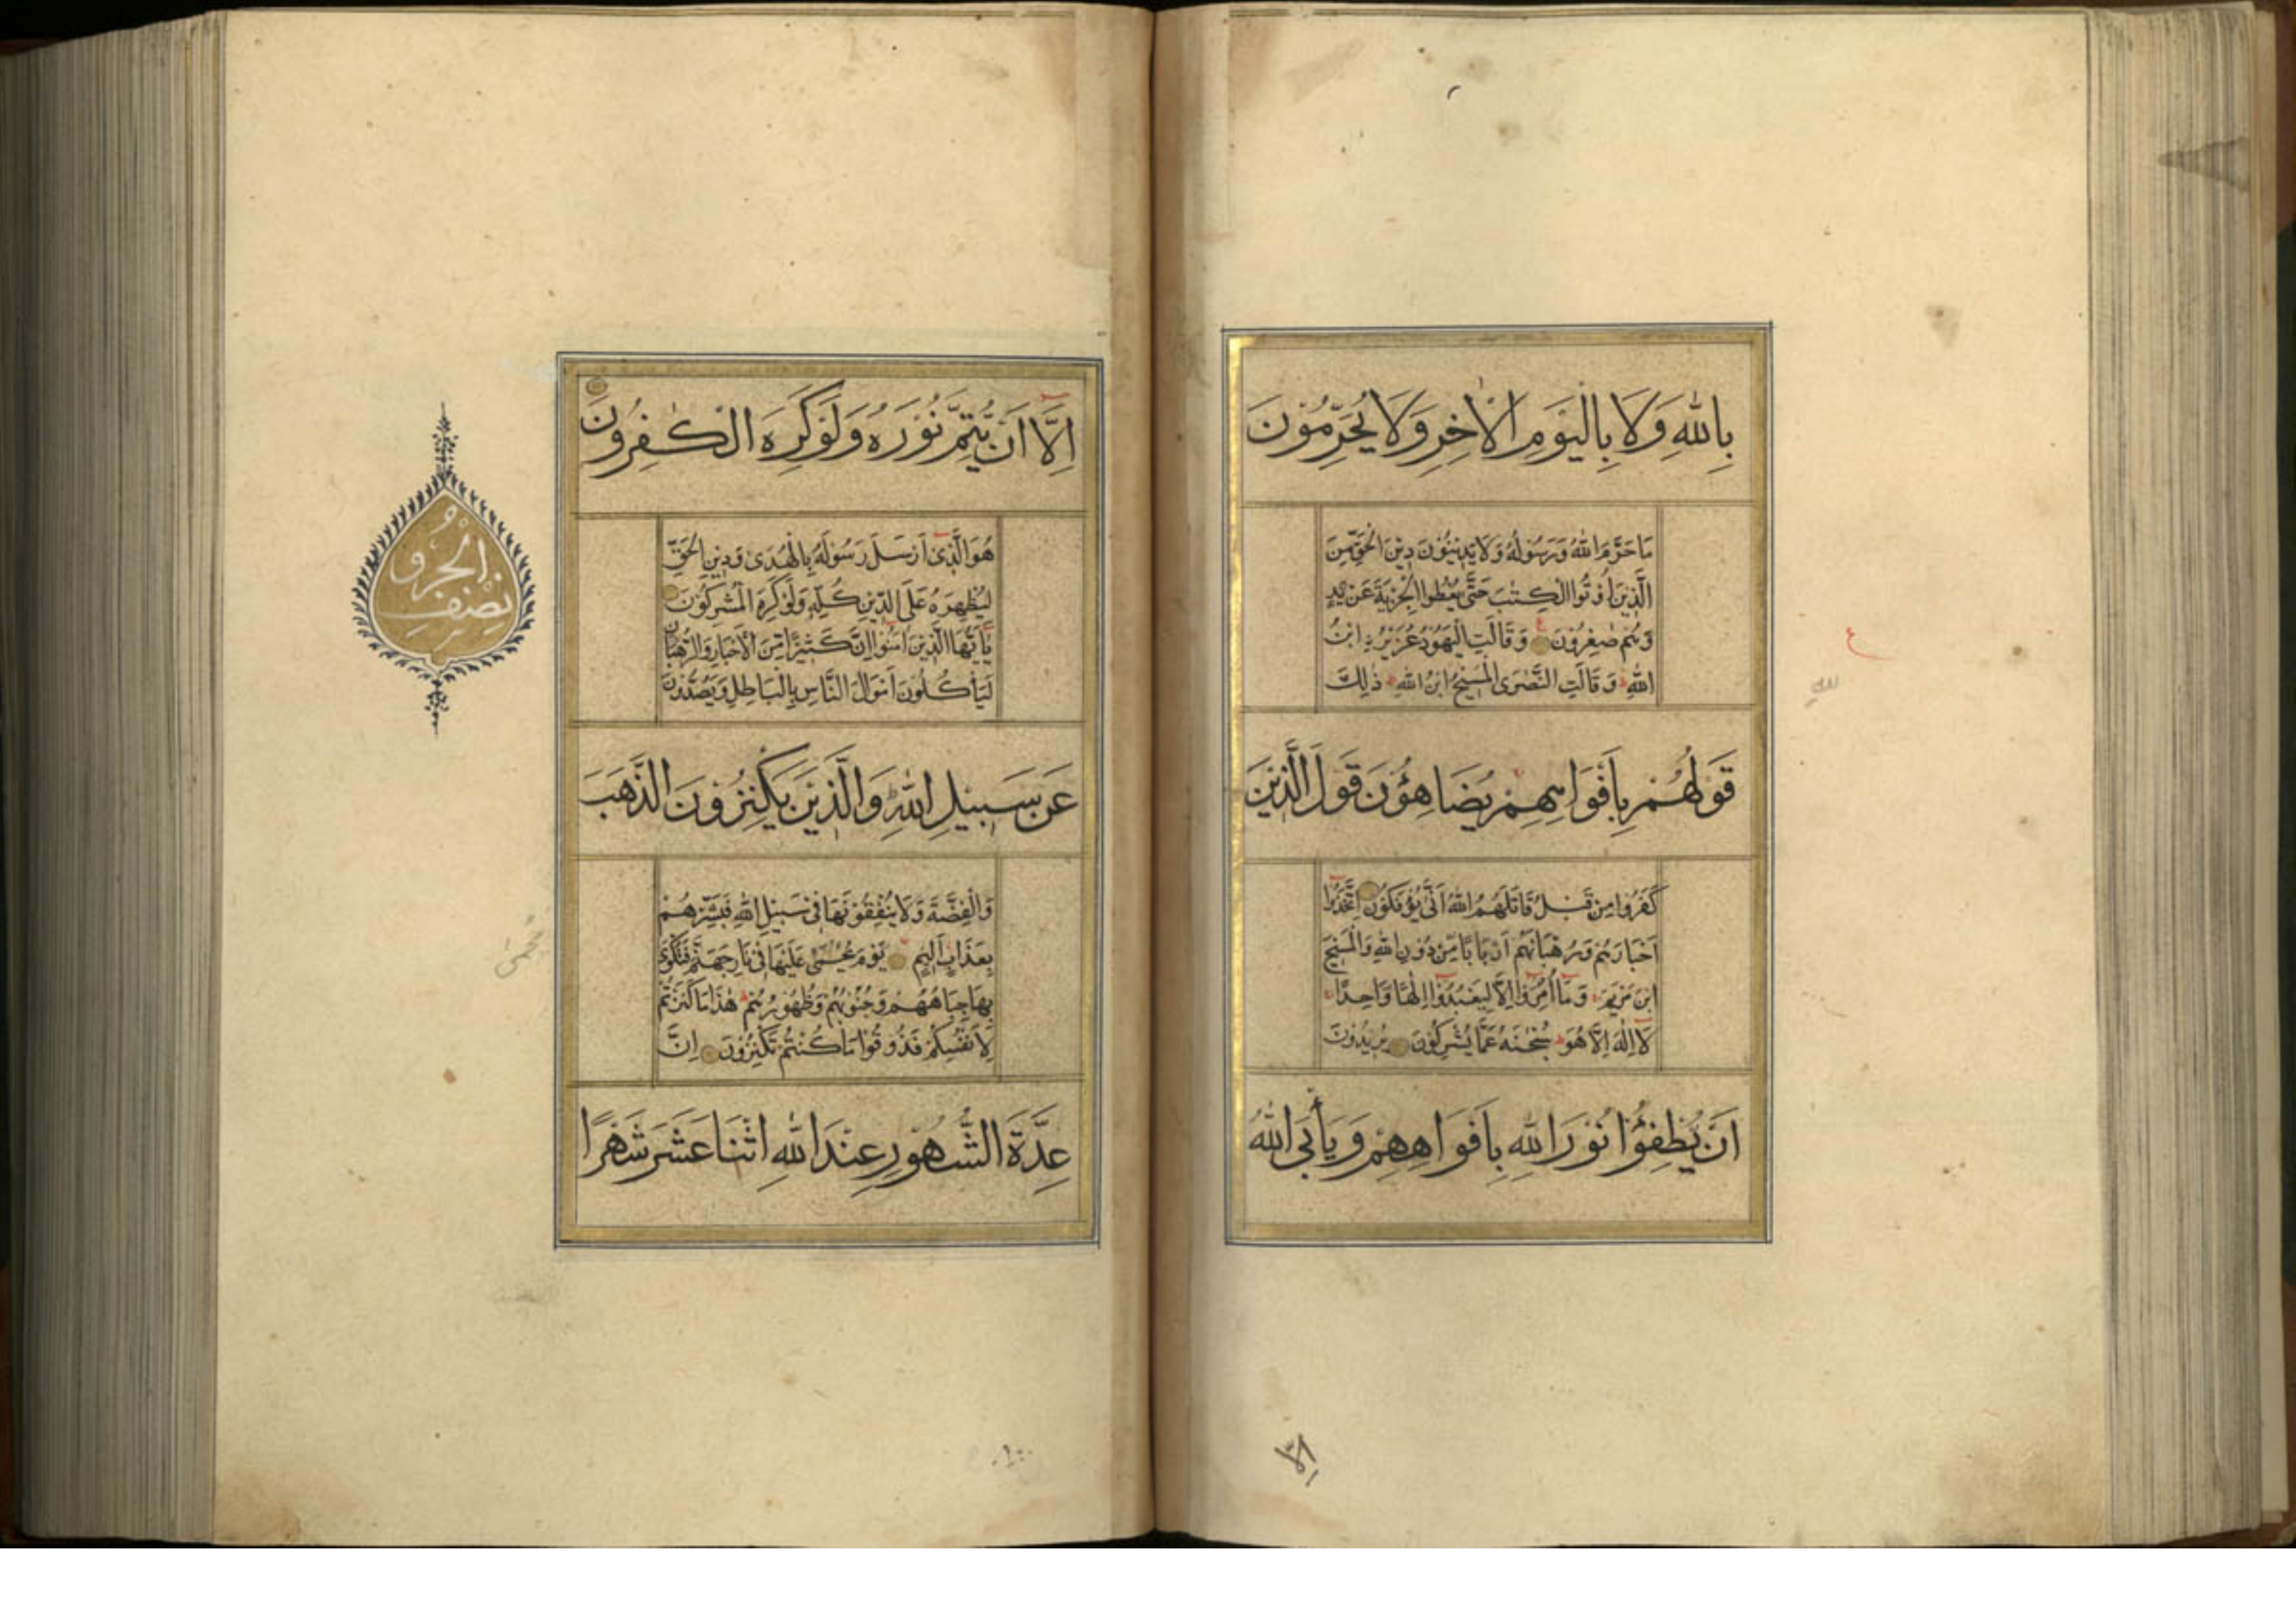 بِاللّٰهِ وَلَا بِالْيَوْمِ الْاٰخِرِ وَلَا يُحَرِّمُوْنَ
مَا حَرَّمَ اللّٰهُ وَرَسُوْلُهُ وَلَا يَدِيْنُوْنَ دِيْنَ الْحَقِّ مِنَ
الَّذِيْنَ اُوْتُوا الْكِتٰبَ حَتّٰى يُعْطُوا الْجِزْيَةَ عَنْ يَدٍ
وَهُمْ صٰغِرُوْنَ وَقَالَتِ الْيَهُوْدُ عُزَيْرُ ابْنُ
اللّٰهِ وَقَالَتِ النَّصٰرَى الْمَسِيْحُ ابْنُ اللّٰهِ ذٰلِكَ
قَوْلُهُمْ بِاَفْوَاهِهِمْ يُضَاهِؤُنَ قَوْلَ الَّذِيْنَ
كَفَرُوا مِنْ قَبْلُ قَاتَلَهُمُ اللّٰهُ اَنّٰى يُؤْفَكُوْنَ اِتَّخَذُوا
اَحْبَارَهُمْ وَرُهْبَانَهُمْ اَرْبَابًا مِّنْ دُوْنِ اللّٰهِ وَالْمَسِيْحَ
ابْنَ مَرْيَمَ وَمَا اُمِرُوْا اِلَّا لِيَعْبُدُوْا اِلٰهًا وَاحِدًا
لَا اِلٰهَ اِلَّا هُوَ سُبْحٰنَهُ عَمَّا يُشْرِكُوْنَ يُرِيْدُوْنَ
اَنْ يُّطْفِؤُا نُوْرَ اللّٰهِ بِاَفْوَاهِهِمْ وَيَأْبَى اللّٰهُ
اِلَّا
اِلَّا اَنْ يُّتِمَّ نُوْرَهُ وَلَوْ كَرِهَ الْكٰفِرُوْنَ
هُوَ الَّذِيْ اَرْسَلَ رَسُوْلَهُ بِالْهُدٰى وَدِيْنِ الْحَقِّ
لِيُظْهِرَهُ عَلَى الدِّيْنِ كُلِّهِ وَلَوْ كَرِهَ الْمُشْرِكُوْنَ
يٰاَيُّهَا الَّذِيْنَ اٰمَنُوْا اِنَّ كَثِيْرًا مِّنَ الْاَحْبَارِ وَالرُّهْبَانِ
لَيَأْكُلُوْنَ اَمْوَالَ النَّاسِ بِالْبَاطِلِ وَيَصُدُّوْنَ
عَنْ سَبِيْلِ اللّٰهِ وَالَّذِيْنَ يَكْنِزُوْنَ الذَّهَبَ
وَالْفِضَّةَ وَلَا يُنْفِقُوْنَهَا فِيْ سَبِيْلِ اللّٰهِ فَبَشِّرْهُمْ
بِعَذَابٍ اَلِيْمٍ يَوْمَ يُحْمٰى عَلَيْهَا فِيْ نَارِ جَهَنَّمَ فَتُكْوٰى
بِهَا جِبَاهُهُمْ وَجُنُوْبُهُمْ وَظُهُوْرُهُمْ هٰذَا مَا كَنَزْتُمْ
لِاَنْفُسِكُمْ فَذُوْقُوْا مَا كُنْتُمْ تَكْنِزُوْنَ اِنَّ
عِدَّةَ الشُّهُوْرِ عِنْدَ اللّٰهِ اثْنَا عَشَرَ شَهْرًا
نِصْفُ الْجُزْو